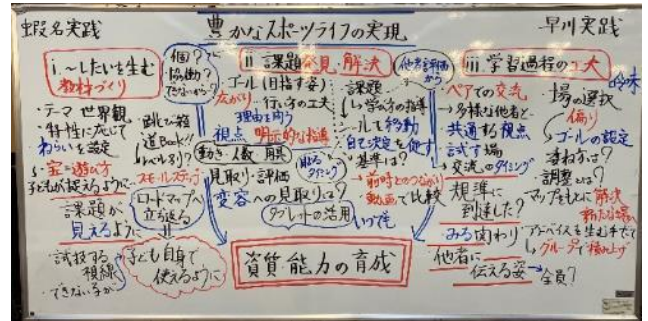 蝦名実践
豊かなスポーツライフの実現
早川実践
i.～したいを生む
教材づくり
・テーマ 世界観
・特性に応じて
ねらいを設定
宝=遊び方
子どもが捉えるように
課題が
見えるように
・試技する
視線
・できない子が
個?
協働?
できないから?
跳び箱
道Book!!
レベル別?
スモールステップ
ロードマップへ
立ち返る
子ども自身で
使えるように
ii.課題発見・解決
・ゴール(目指す姿)
広がり
行い方の工夫
理由を問う
視点 明示的な指導
動き・人数・用具
見取り・評価
変容への見取りは?
貼る
タイミング
タブレットの活用
いつでも
他者評価
から
課題
学び方の指導
シールで移動
自己決定を促す
・基準は?
前時とのつながり
動画で比較
資質・能力の育成
iii.学習過程の工夫
吟味
ペアでの交流
多様な他者と
共通する視点
試す場
交流のタイミング
規準に
到達した?
みる関わり
他者に
伝える姿
全員?
場の選択
偏り
ゴールの設定
尋ね方は?
調整とは?
マップをもとに解決
アドバイスを生む手だて
グループで積み上げ